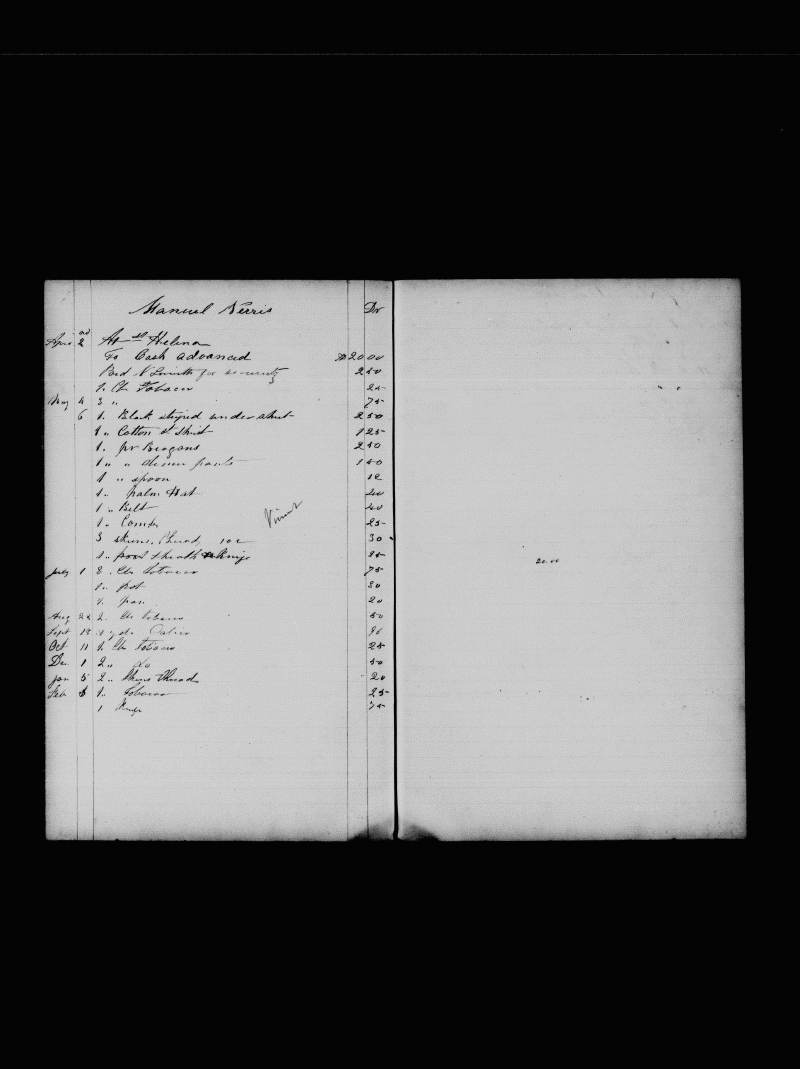 Manuel Ferris Dr
Apri 2nd At St Helena
To Cash advanced $ 20 00
Paid N Smith for security 2 50
1 lb Tobaco 25
May 4 3 " 75
6 1 " Black striped under shirt 2 50
1 " Cotton shirt 1 25
1 " pr Brogans 2 50
1 " " denim pants 1 50
1 " spoon 12
1 " palm Hat 20
1 " Belt 40
1 " Comb 25
3 skeins Thread, 10c 30
Vincent
1 " sheath Knife
July 1 lbs Tobacco 75
1 " pot 30
1 pan 20
Aug 2 " lbs Tobaco 50
Sept 18 yds Calico
Oct 11 1 lb Tobaco 25
Dec 1 2 " Do 50
Jan 5 2 " Skeins Thread 20
Feb 1 " Tobacco 25
1 Knife 75
20 00